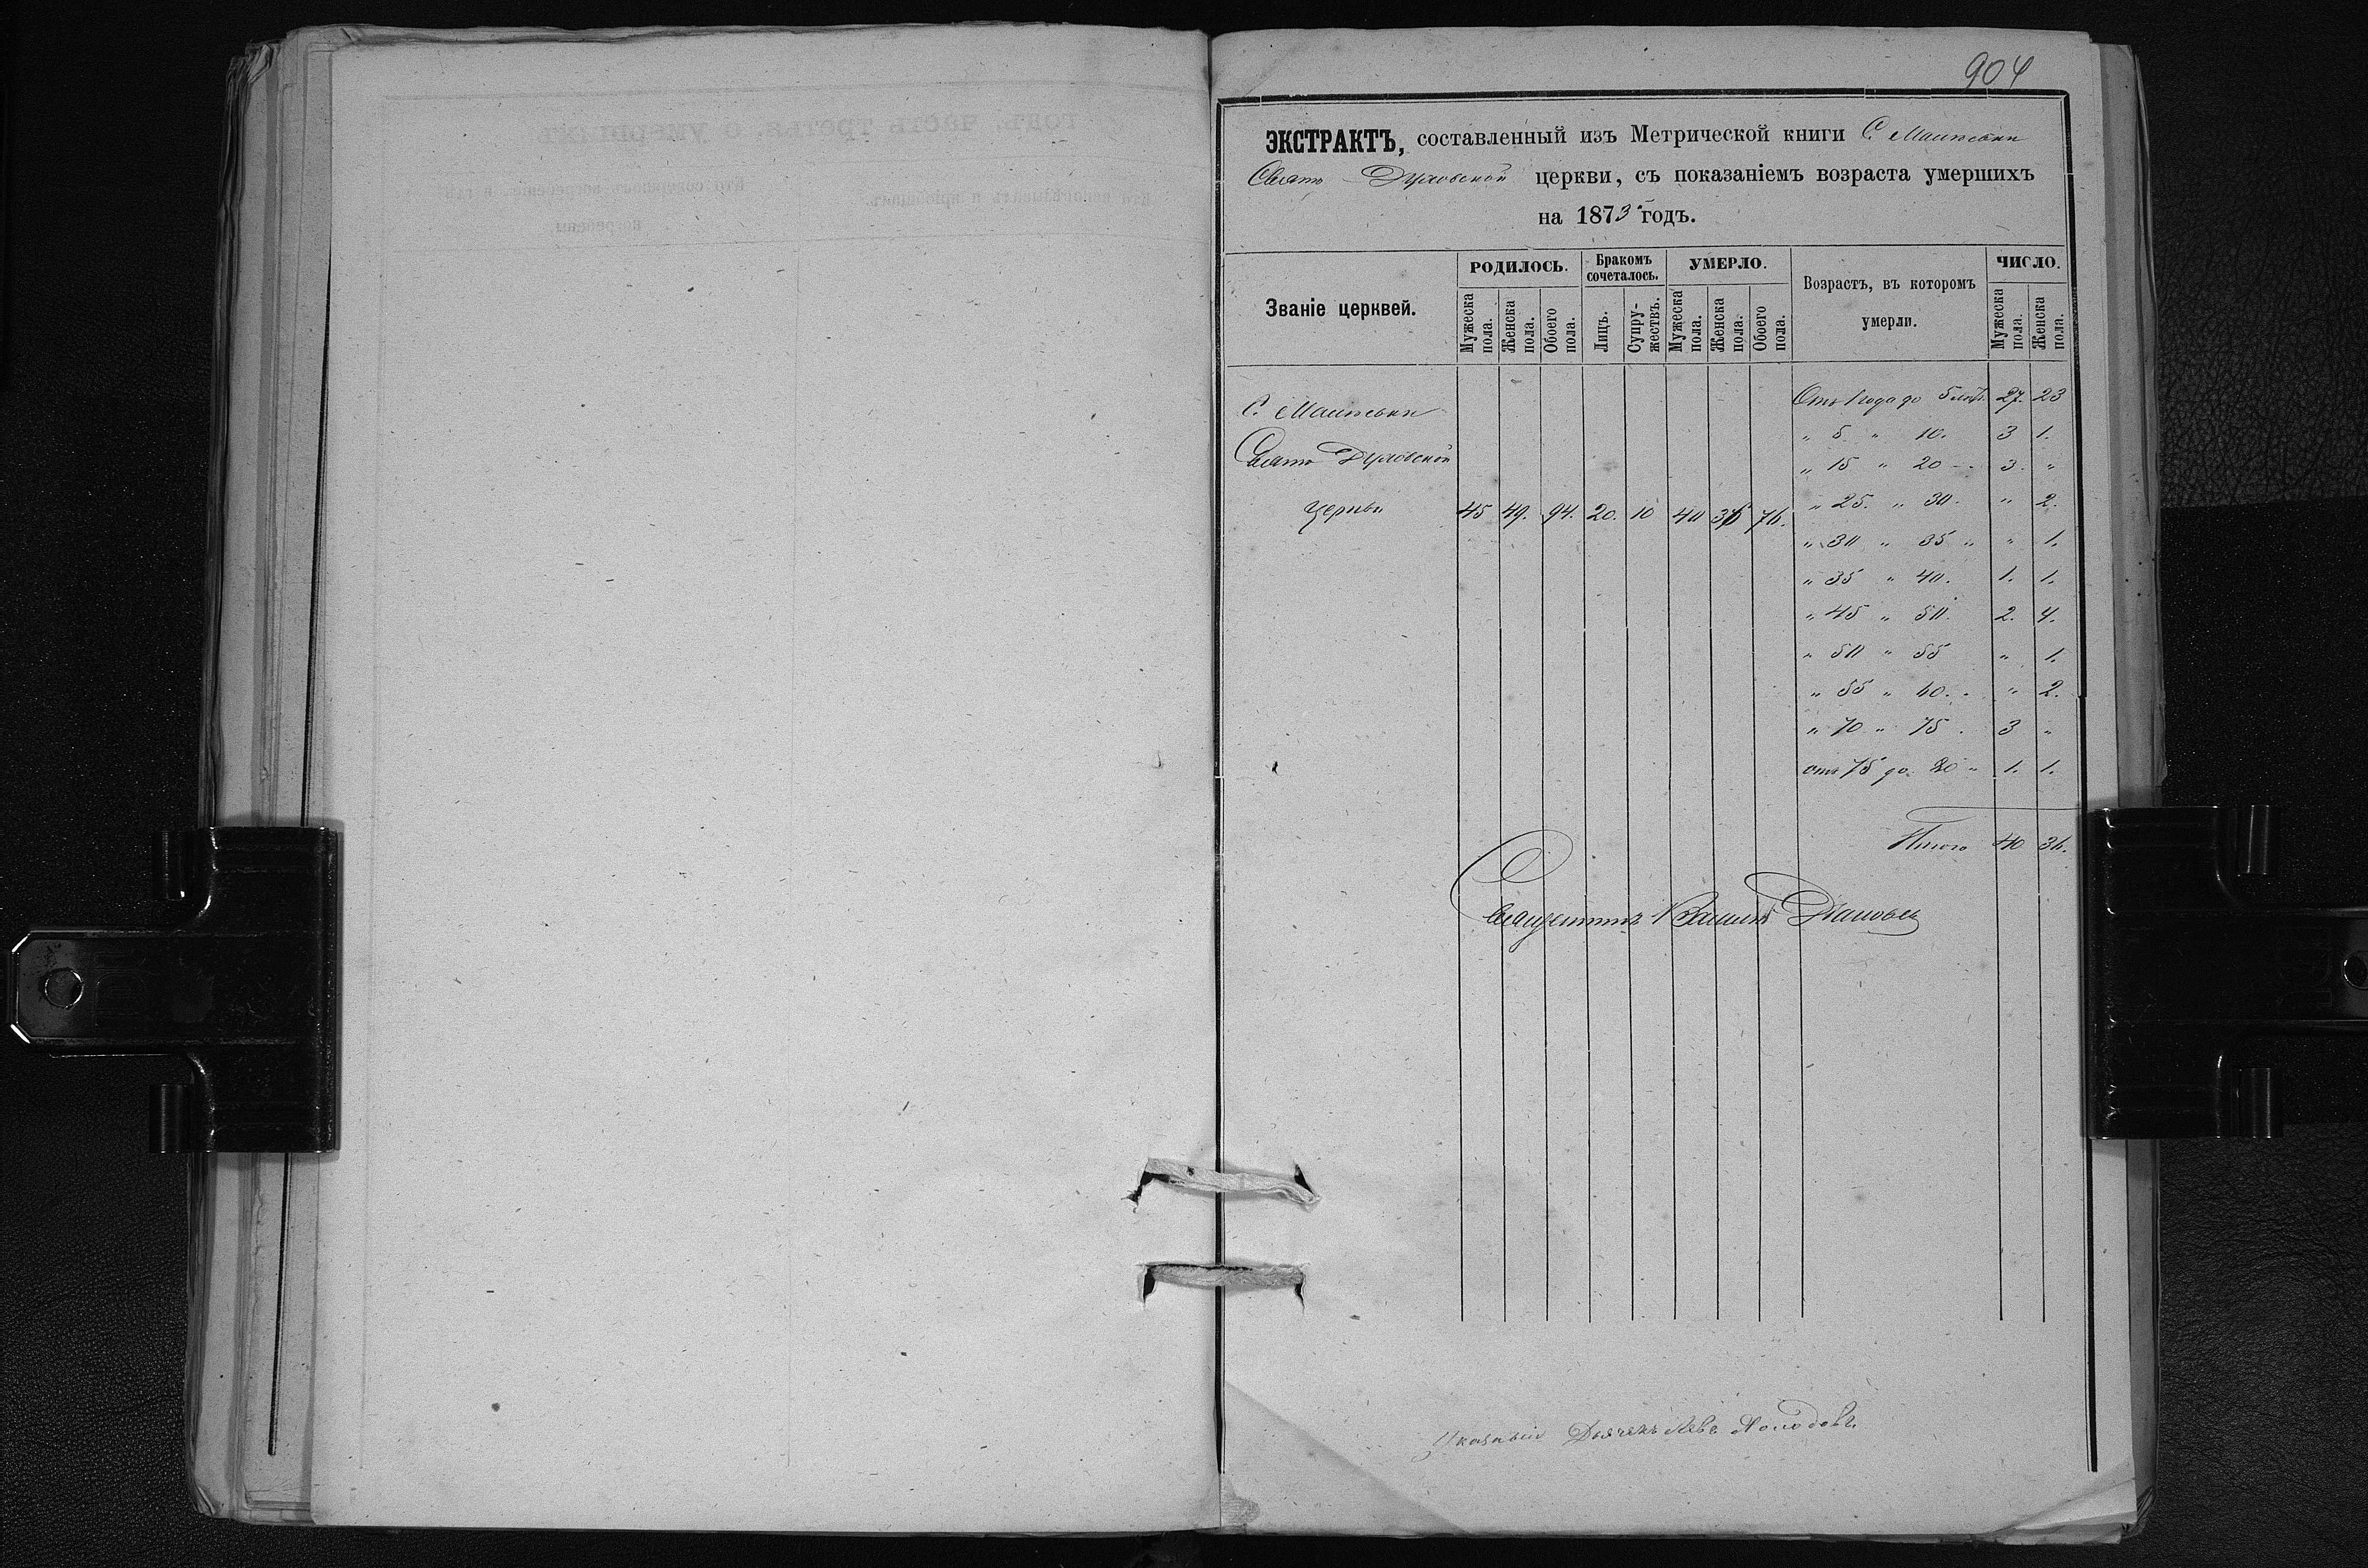 904
ЭКСТРАКТЪ, составленный изъ Метрической книги С.
Свято Духовской церкви, съ показаніемъ возраста умершихъ
на 1873 годъ.
Званіе церквей.
РОДИЛОСЬ.
Мужеска пола.
Женска пола.
Обоего пола.
Бракомъ сочеталось.
Лицъ.
Супружествъ.
УМЕРЛО.
Мужеска пола.
Женска пола.
Обоего пола.
Возрастъ, въ которомъ
умерли.
ЧИСЛО.
Мужеска пола.
Женска пола.
С.
Свято Духовской
церкви 45 49. 94. 20. 10 40 36 76.
Отъ 1 года до 5 лѣт. 27. 23
" 5 " 10. 3 1.
" 15 " 20 3. "
" 25. " 30. " 2.
" 30 " 35 " " 1.
" 35 " 40. 1. 1.
" 45 " 50. 2. 4.
" 50 " 55 " 1.
" 55 " 60. " 2.
" 70 " 75. 3 "
отъ 75 до 80 " 1. 1.
Итого 40 36.
Священникъ
Указный Дьячекъ Левъ